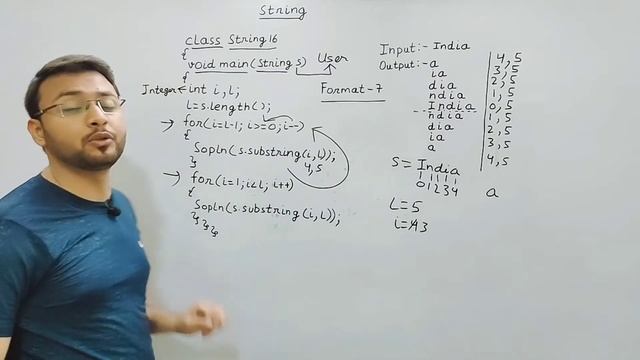 String
class String16
{
void main(String s) User
{
Integer int i,l; Format-7
l=s.length();
for(i=l-1; i>=0; i--)
{
Sopln(s.substring(i,l));
4,5
}
for(i=1; i<l; i++)
{
Sopln(s.substring(i,l));
}}}
Input:- India
Output:- a 4,5
ia 3,5
dia 2,5
ndia 1,5
India 0,5
ndia 1,5
dia 2,5
ia 3,5
a 4,5
S = India
0 1 2 3 4
a
L=5
i=4 3